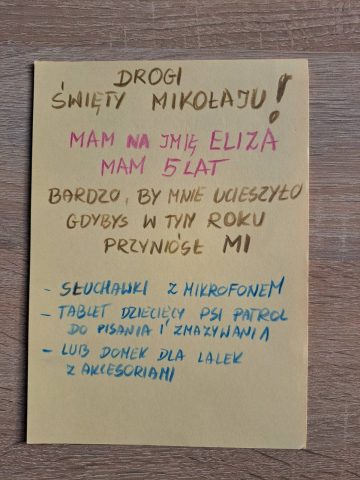 DROGI
ŚWIĘTY MIKOŁAJU!
MAM NA IMIĘ ELIZA
MAM 5 LAT
BARDZO, BY MNIE UCIESZYŁO
GDYBYŚ W TYM ROKU
PRZYNIÓSŁ MI
- SŁUCHAWKI Z MIKROFONEM
- TABLET DZIECIĘCY PSI PATROL
DO PISANIA I ZMAZYWANIA
- LUB DOMEK DLA LALEK
Z AKCESORIAMI